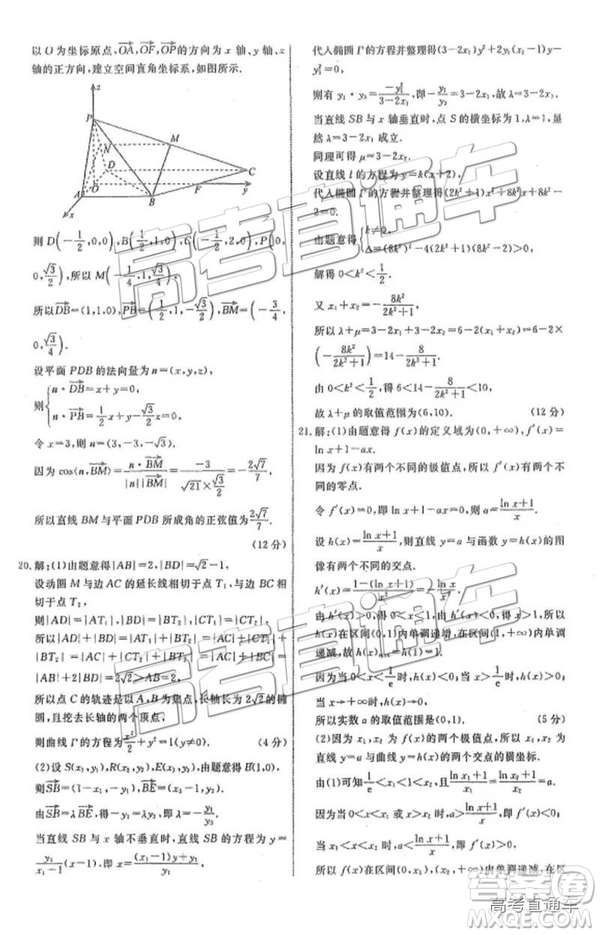 以O为坐标原点,OA,OF,OP的方向为x轴、y轴、z
轴的正方向,建立空间直角坐标系,如图所示.
z
P
N
M
D
C
A
O
B
F
y
x
则D(-1/2,0,0),B(1/2,1,0),C(-1/2,2,0),P(0,
0,√3/2),所以M(-1/4,1,√3/4).
所以DB=(1,1,0),PB=(1/2,1,-√3/2),BM=(-3/4,
0,√3/4).
设平面PDB的法向量为n=(x,y,z),
则{n·DB=x+y=0,
n·PB=1/2x+y-√3/2z=0.
令x=3,则n=(3,-3,-√3).
因为cos⟨n,BM⟩=n·BM/|n||BM|=-3/(√21×√3/2)=-2√7/7,
所以直线BM与平面PDB所成角的正弦值为2√7/7.
(12分)
20.解:(1)由题意得|AB|=2,|BD|=√2-1,
设动圆M与边AC的延长线相切于点T₁,与边BC相
切于点T₂,
则|AD|=|AT₁|,|BD|=|BT₂|,|CT₁|=|CT₂|.
所以|AD|+|BD|=|AT₁|+|BT₂|=|AC|+|CT₁|
+|BT₂|=|AC|+|CT₂|+|BT₂|=|AC|+|BC|=
|AB|+2|BD|=2√2>|AB|=2.
所以点C的轨迹是以A,B为焦点,长轴长为2√2的椭
圆,且挖去长轴的两个顶点,
则曲线Γ的方程为x²/2+y²=1(y≠0). (4分)
(2)设S(x₁,y₁),R(x₂,y₂),E(x₃,y₃),由题意得B(1,0),
则SB=(1-x₁,-y₁),BE=(x₃-1,y₃).
由SB=λBE,得-y₁=λy₃,即λ=-y₁/y₃.
当直线SB与x轴不垂直时,直线SB的方程为y=
y₁/(x₁-1)(x-1),即x=((x₁-1)y+y₁)/y₁,
代入椭圆Γ的方程并整理得(3-2x₁)y²+2y₁(x₁-1)y
-y₁²=0,
则有y₁·y₃=-y₁²/(3-2x₁),即-y₁/y₃=3-2x₁,故λ=3-2x₁.
当直线SB与x轴垂直时,点S的横坐标为1,λ=1,显
然λ=3-2x₁成立.
同理可得μ=3-2x₂.
设直线l的方程为y=k(x+2),
代入椭圆Γ的方程并整理得(2k²+1)x²+8k²x+8k²-
2=0.
由题意得{k²≠0,
Δ=(8k²)²-4(2k²+1)(8k²-2)>0,
解得0<k²<1/2.
又x₁+x₂=-8k²/(2k²+1),
所以λ+μ=3-2x₁+3-2x₂=6-2(x₁+x₂)=6-2×
(-8k²/(2k²+1))=14-8/(2k²+1).
由0<k²<1/2,得6<14-8/(2k²+1)<10,
故λ+μ的取值范围为(6,10). (12分)
21.解:(1)由题意得f(x)的定义域为(0,+∞),f′(x)=
ln x+1-ax.
因为f(x)有两个不同的极值点,所以f′(x)有两个不
同的零点.
令f′(x)=0,即ln x+1-ax=0,则a=(ln x+1)/x.
设h(x)=(ln x+1)/x,则直线y=a与曲线y=h(x)的图像
有两个不同的交点.
h′(x)=(1-(ln x+1))/x²=-ln x/x².
由h′(x)>0,得0<x<1,由h′(x)<0,得x>1,
所以h(x)在区间(0,1)内单调递增,在(1,+∞)单调
递减,故h(x)max=h(1)=1.
当x→0时,h(x)→-∞,
当x→+∞时,h(x)→0,
所以实数a的取值范围是(0,1). (5分)
(2)因为x₁,x₂为f(x)的两个极值点,所以x₁,x₂为
直线y=a与曲线y=h(x)的两个交点的横坐标.
由(1)可知1/e<x₁<1<x₂,且(ln x₁+1)/x₁=(ln x₂+1)/x₂=a.
因为当0<x<x₁或x>x₂时,a>(ln x+1)/x,即f′(x)<0,
当x₁<x<x₂时,a<(ln x+1)/x,即f′(x)>0,
所以f(x)在区间(0,x₁),(x₂,+∞)内单调递减,在区
高考直通车
高考直通车
答案圈
MXQE.COM
高考直通车